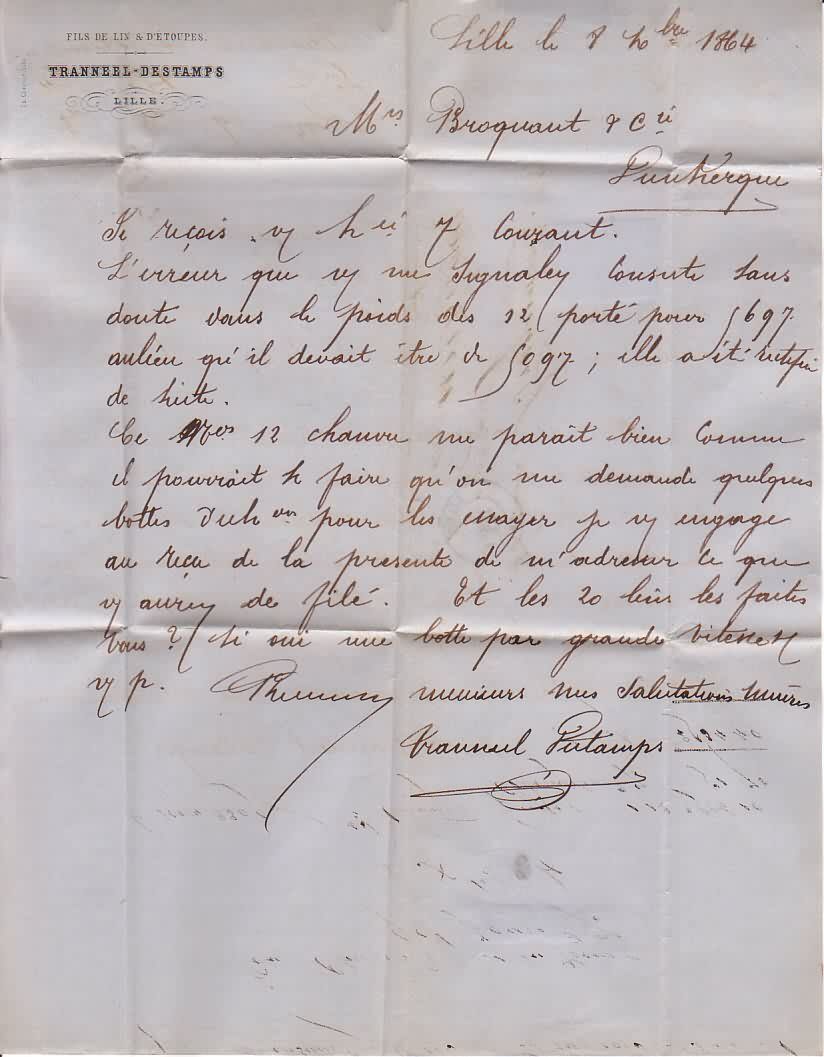 FILS DE LIN & D'ETOUPES.
TRANNEEL-DESTAMPS
LILLE.
Lille le 8 bre 1864
Mrs Broquant & Cie
Dunkerque
Je reçois 7 Courant.
L'erreur que me signalez Consiste sans
doute dans le poids des 12 porté pour 5697
aulieu qu'il devait être de 5097; elle a été rectifiée
de suite.
Ce 12 chanvre me parait bien Comme
il pourrait se faire qu'on me demande quelques
bottes d'ech ons pour les essayer je vs engage
au reçu de la presente de m'adresser ce que
vs aurez de filé. Et les 20 les faites
vous? Si oui une botte par grande vitesse
p. Recevez messieurs mes Salutations sincères
Tranneel Destamps